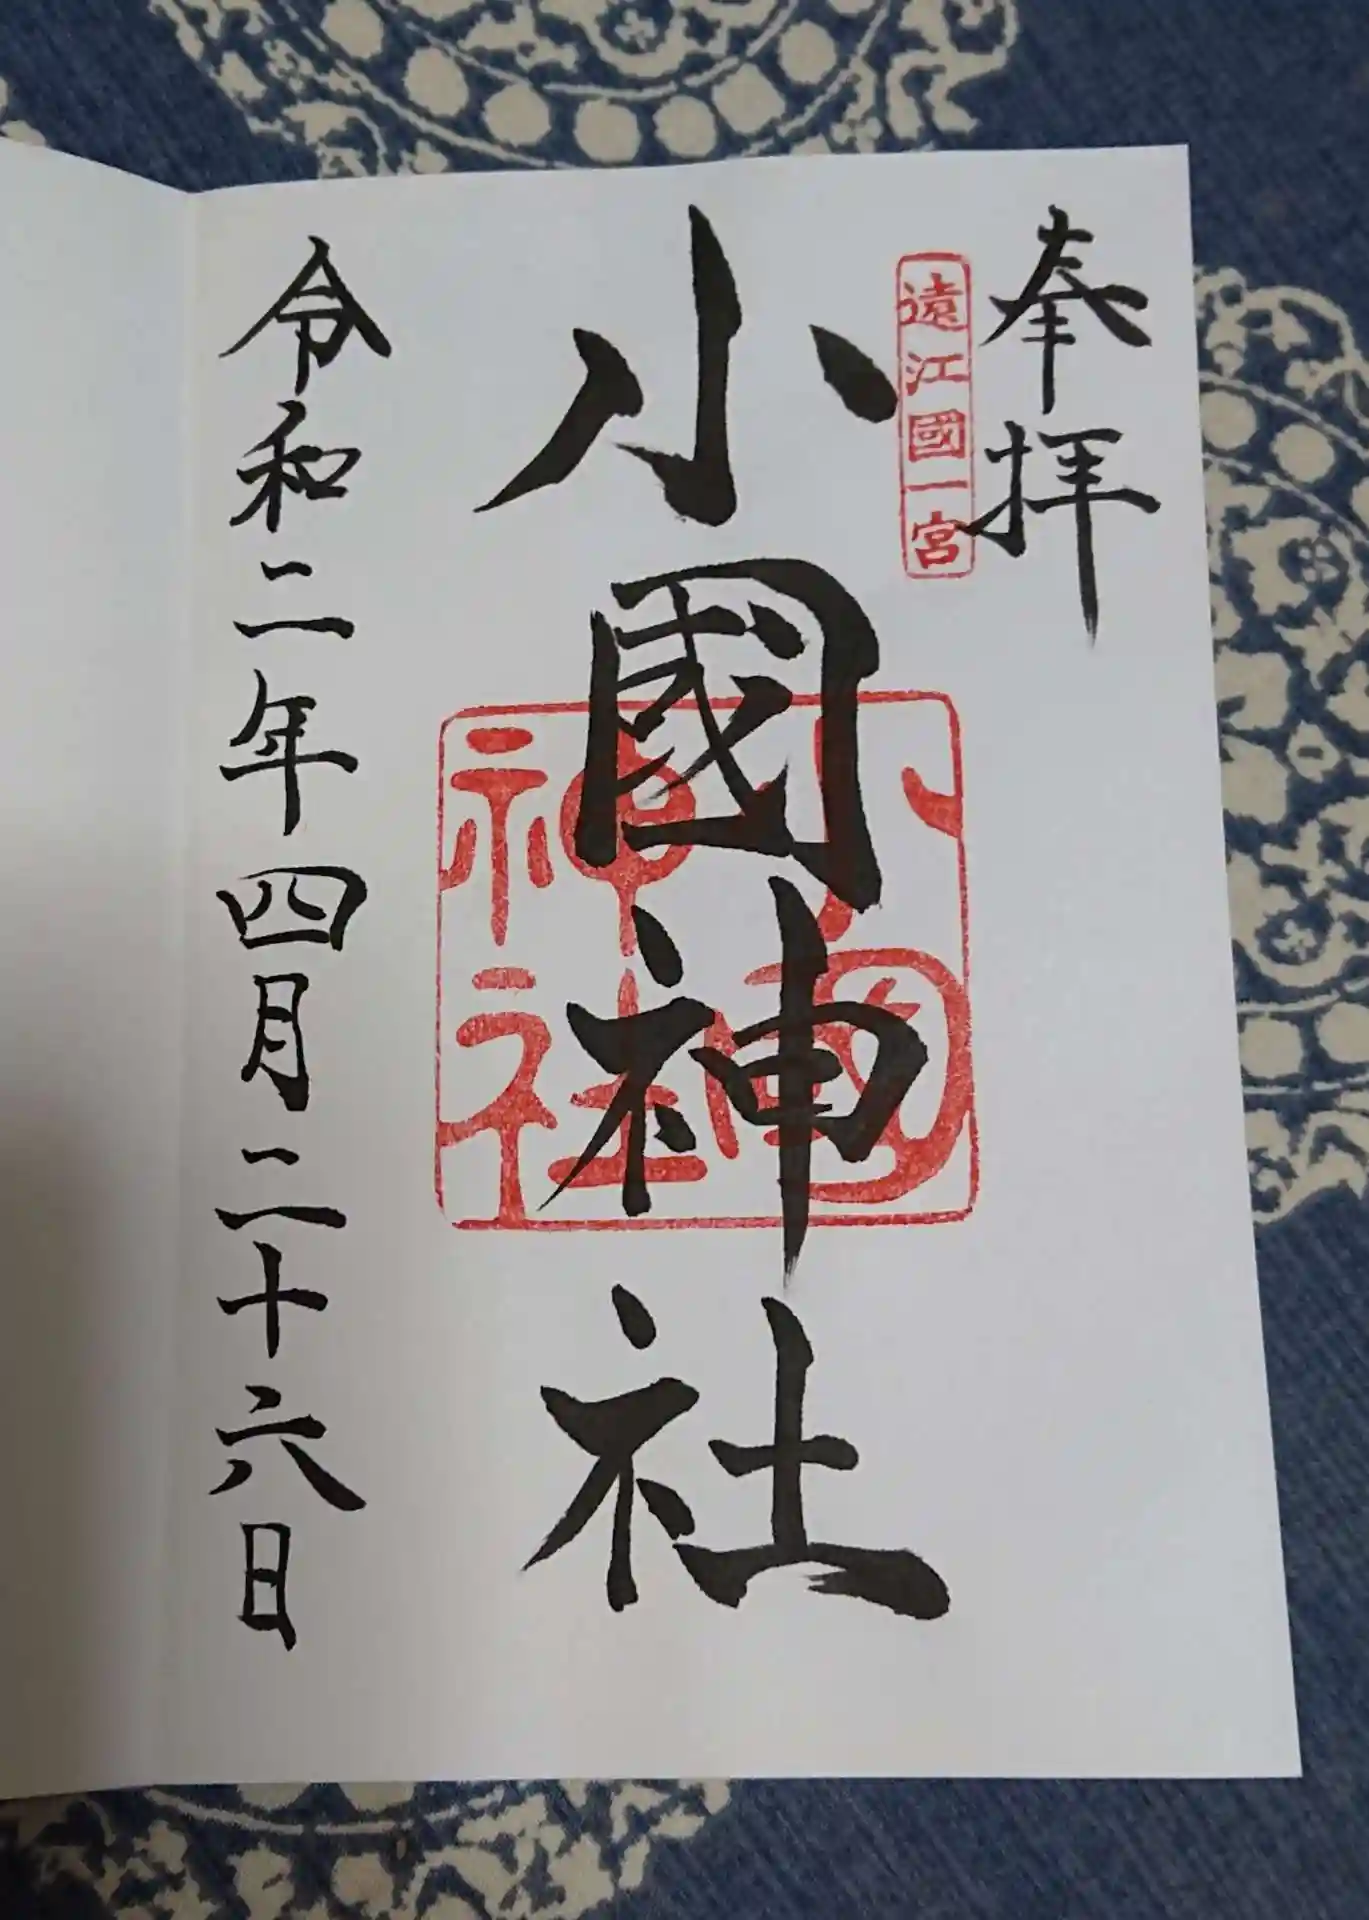 奉拝
遠江國一宮
小國神社
小國
神社
令和二年四月二十六日